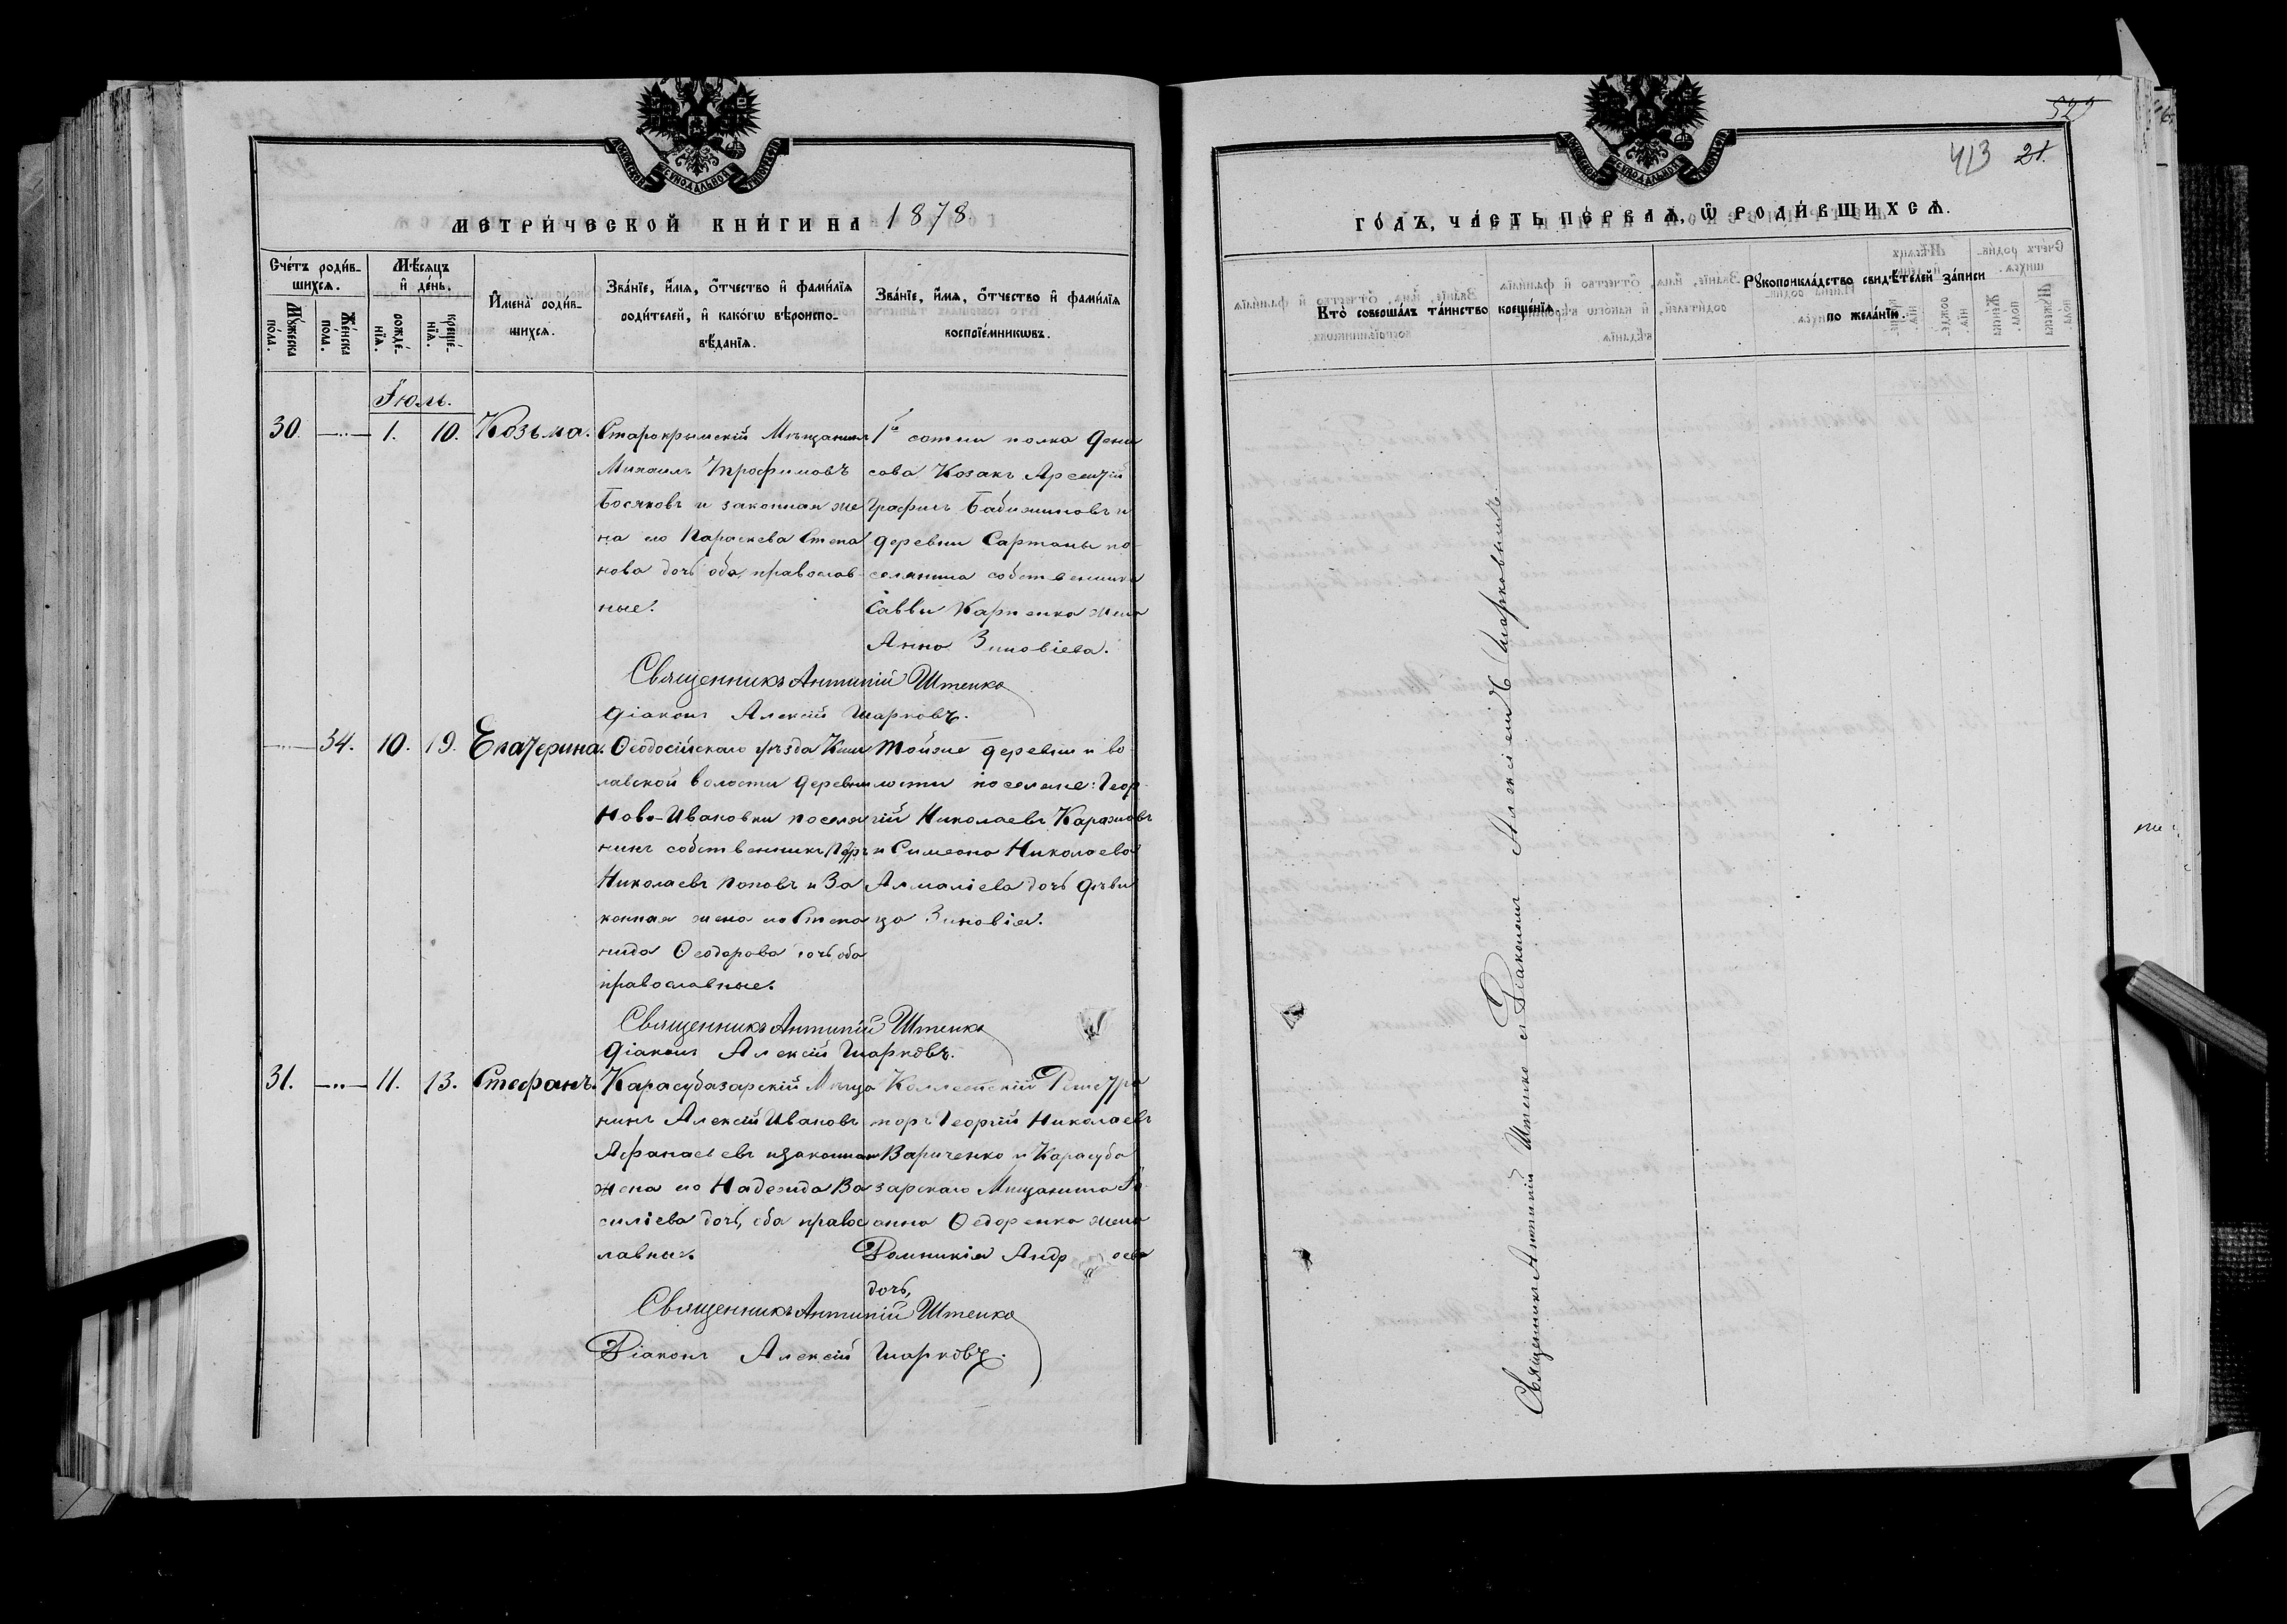 МЕТРИ́ЧЕСКОЙ КНИ́ГИ НА 1878
Сче́тъ роди́в-
шихсѧ.
Мѣ́сѧцъ
и҆ де́нь.
Мꙋ́жеска
по́ла.
Же́нска
по́ла.
рожде́-
нїѧ.
креще́-
нїѧ.
И҆мена̀ роди́в-
шихсѧ.
Зва́нїе, и҆́мѧ, ѻ҆́тчество и҆ фамѝлїѧ
роди́телей, и҆ како́гѡ вѣроиспо-
вѣ́данїѧ.
Зва́нїе, и҆́мѧ, ѻ҆́тчество и҆ фамѝлїѧ
воспрїе́мникѡвъ.
Іюль.
30. 1. 10. Козьма.
Старокрымскій Мѣщанинъ
Михаилъ Трофимовъ
Босяковъ и законная же
на его Параскева Степа
нова дочь оба православ-
ные.
1й сотни полка Дени
сова Козакъ Арсентій
деревни Сартаны по-
селянина собственника
Саввы Карпенка жена
Анна Зиновіева.
Священникъ Антипій Штенко
Діаконъ Алексій Шарковъ.
34. 10. 19. Екатерина.
Ѳеодосійскаго уѣзда
лавской волости деревни
Ново-Ивановки поселя
нинъ собственникъ Петръ
Николаевъ Поповъ и За
конная жена его Степа
нида Ѳеодорова дочь оба
православные.
Той же деревни и во
лости поселяне: Геор
гій Николаевъ
и Симеона Николаева
Алмаліева дочь дѣви
ца Зиновія.
Священникъ Антипій Штенко
Діаконъ Алексій Шарковъ.
31. 11. 13. Стефанъ.
Карасубазарскій Мѣща
нинъ Алексій Ивановъ
Афанасьевъ и законная
жена его Надежда Ва
силіева дочь, оба правос
лавные.
Коллежскій Регистра
торъ Георгій Николаевъ
Вариченко и Карасуба
зарскаго Мѣщанина Іо
анна Ѳедоренка жена
Домникія Андр
дочь,
Священникъ Антипій Штенко
Діаконъ Алексій Шарковъ.
529
413 21.
ГО́ДЪ, ЧА́СТЬ ПЕ́РВАѦ, Ѿ РОДИ́ВШИХСѦ.
Кто̀ соверша́лъ та́инство креще́нїѧ.
Рꙋкоприкла́дство свидѣ́телей за́писи
по жела́нїю.
Священникъ Антипій Штенко съ Діакономъ Алексіемъ Шарковымъ.